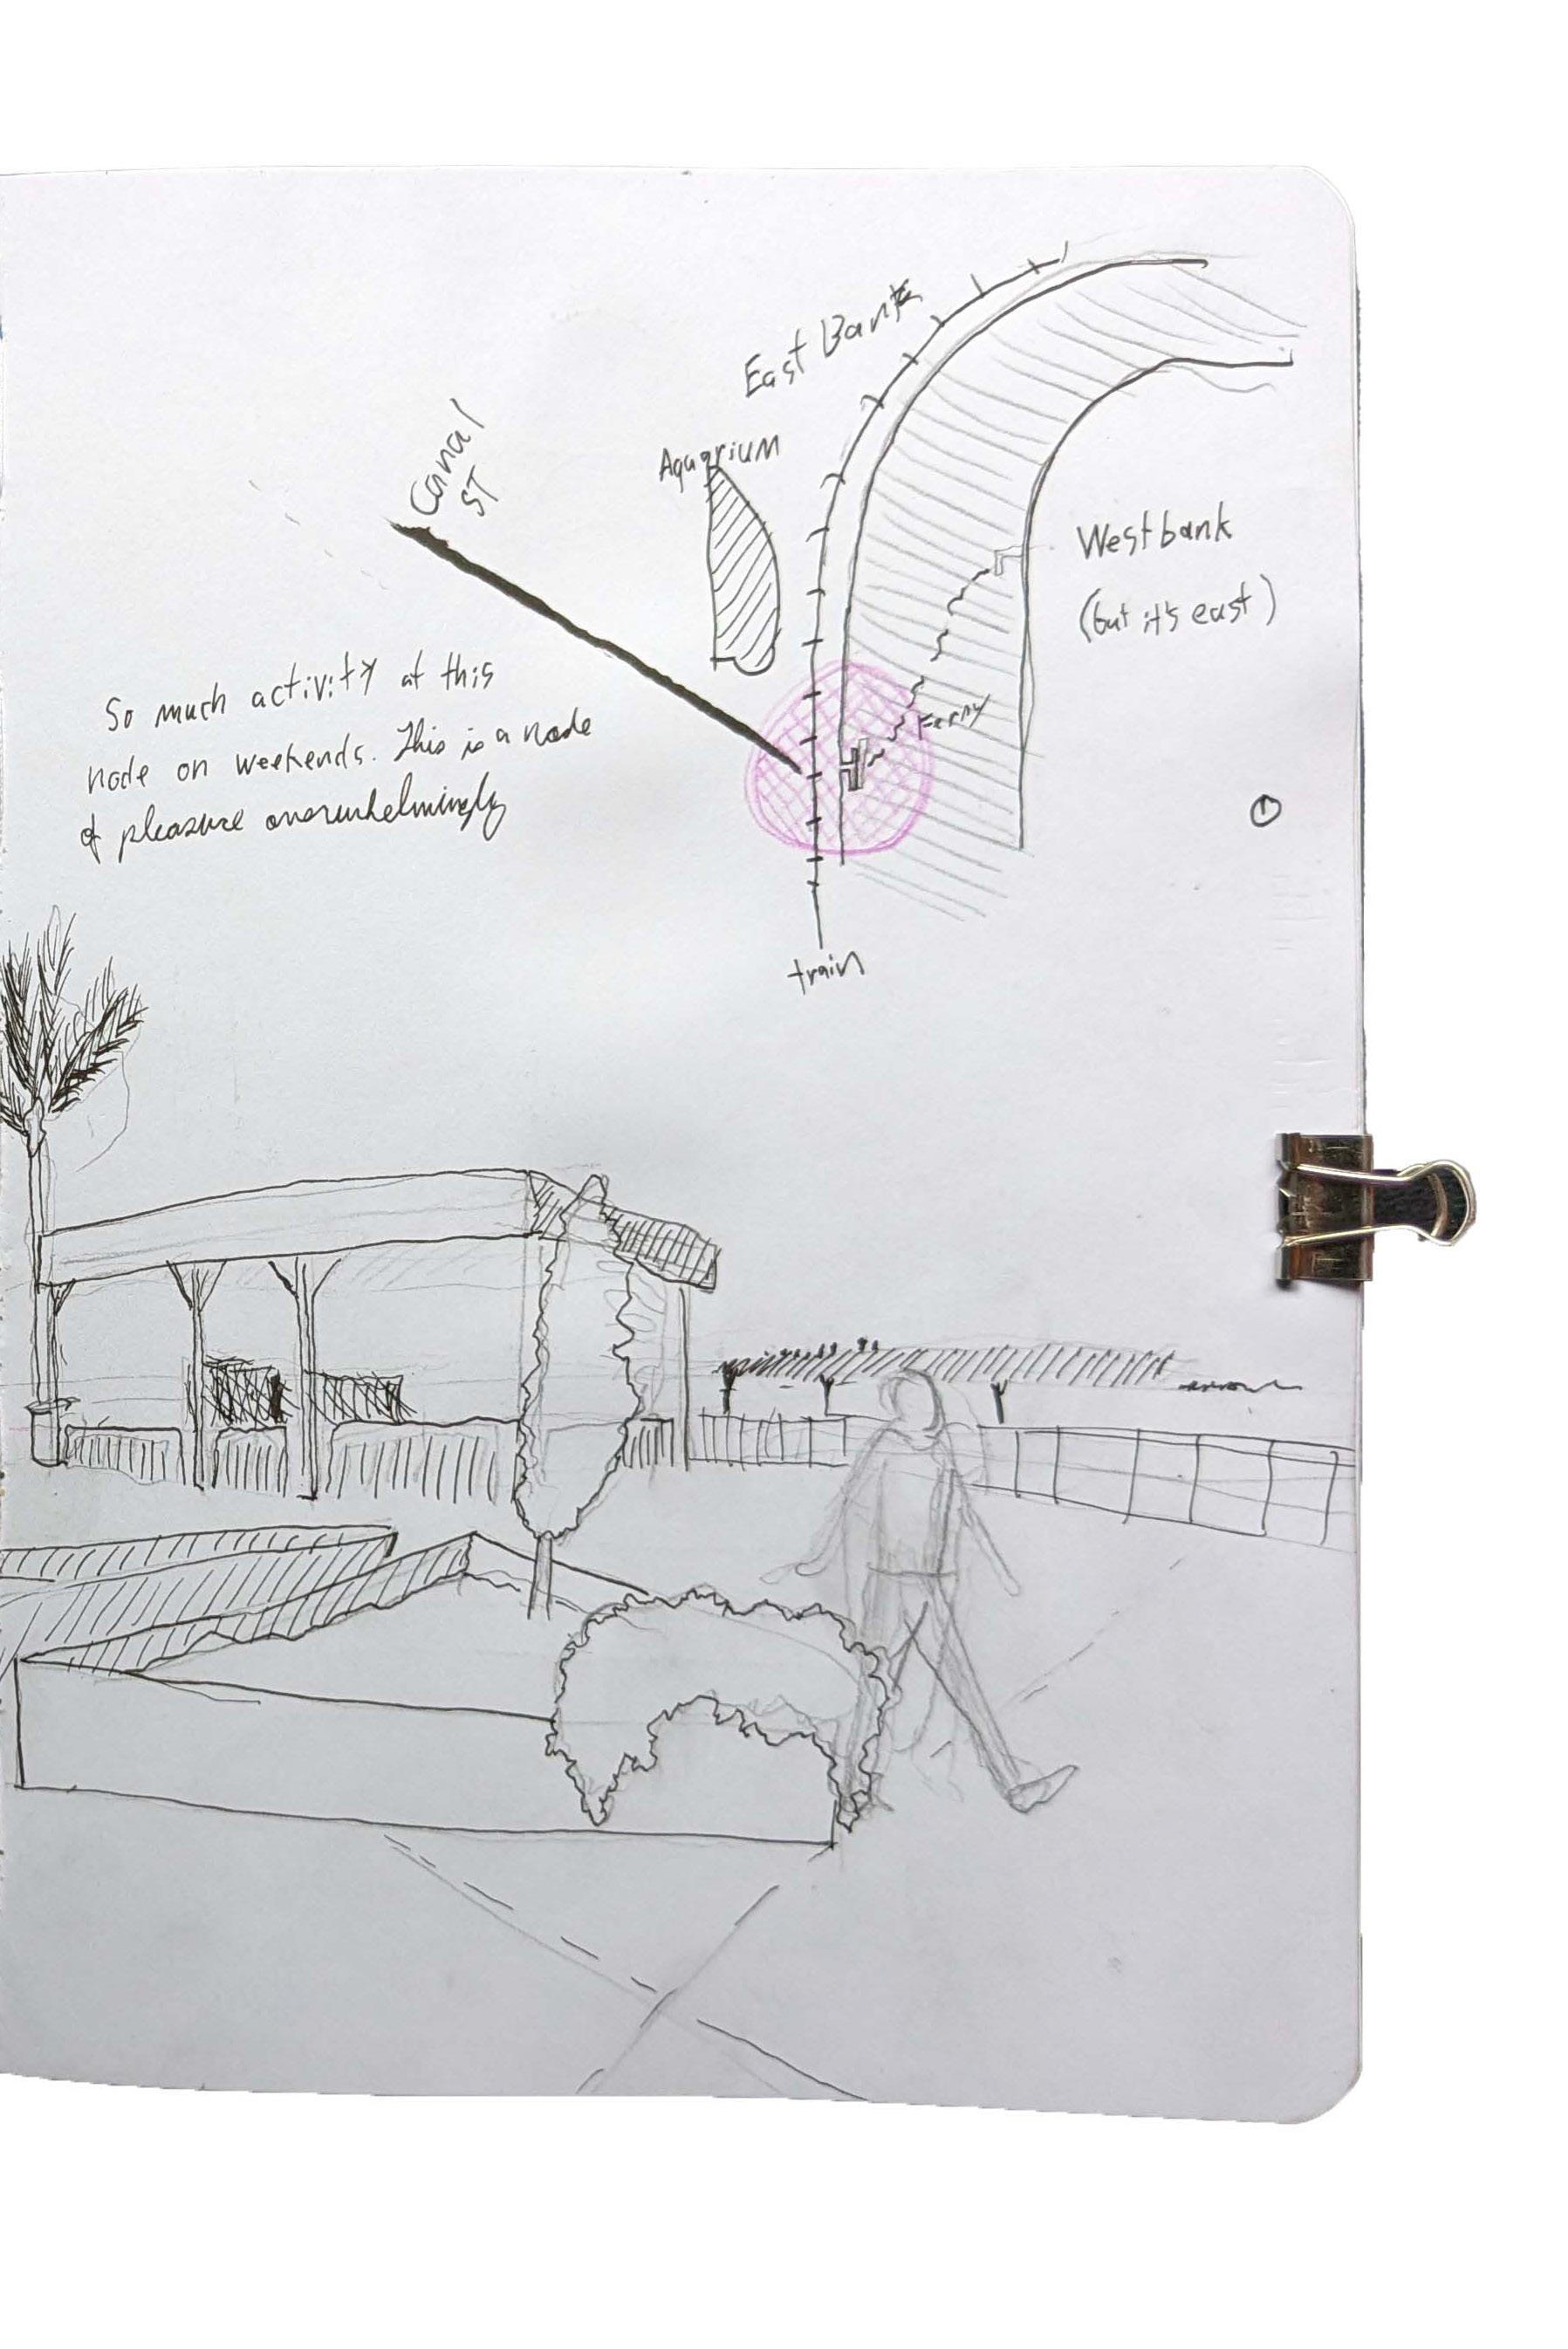 East Bank
Canal
ST
Aquarium
Westbank
(but it's east)
Ferry
So much activity at this
node on weekends. This is a node
of pleasure overwhelmingly
train